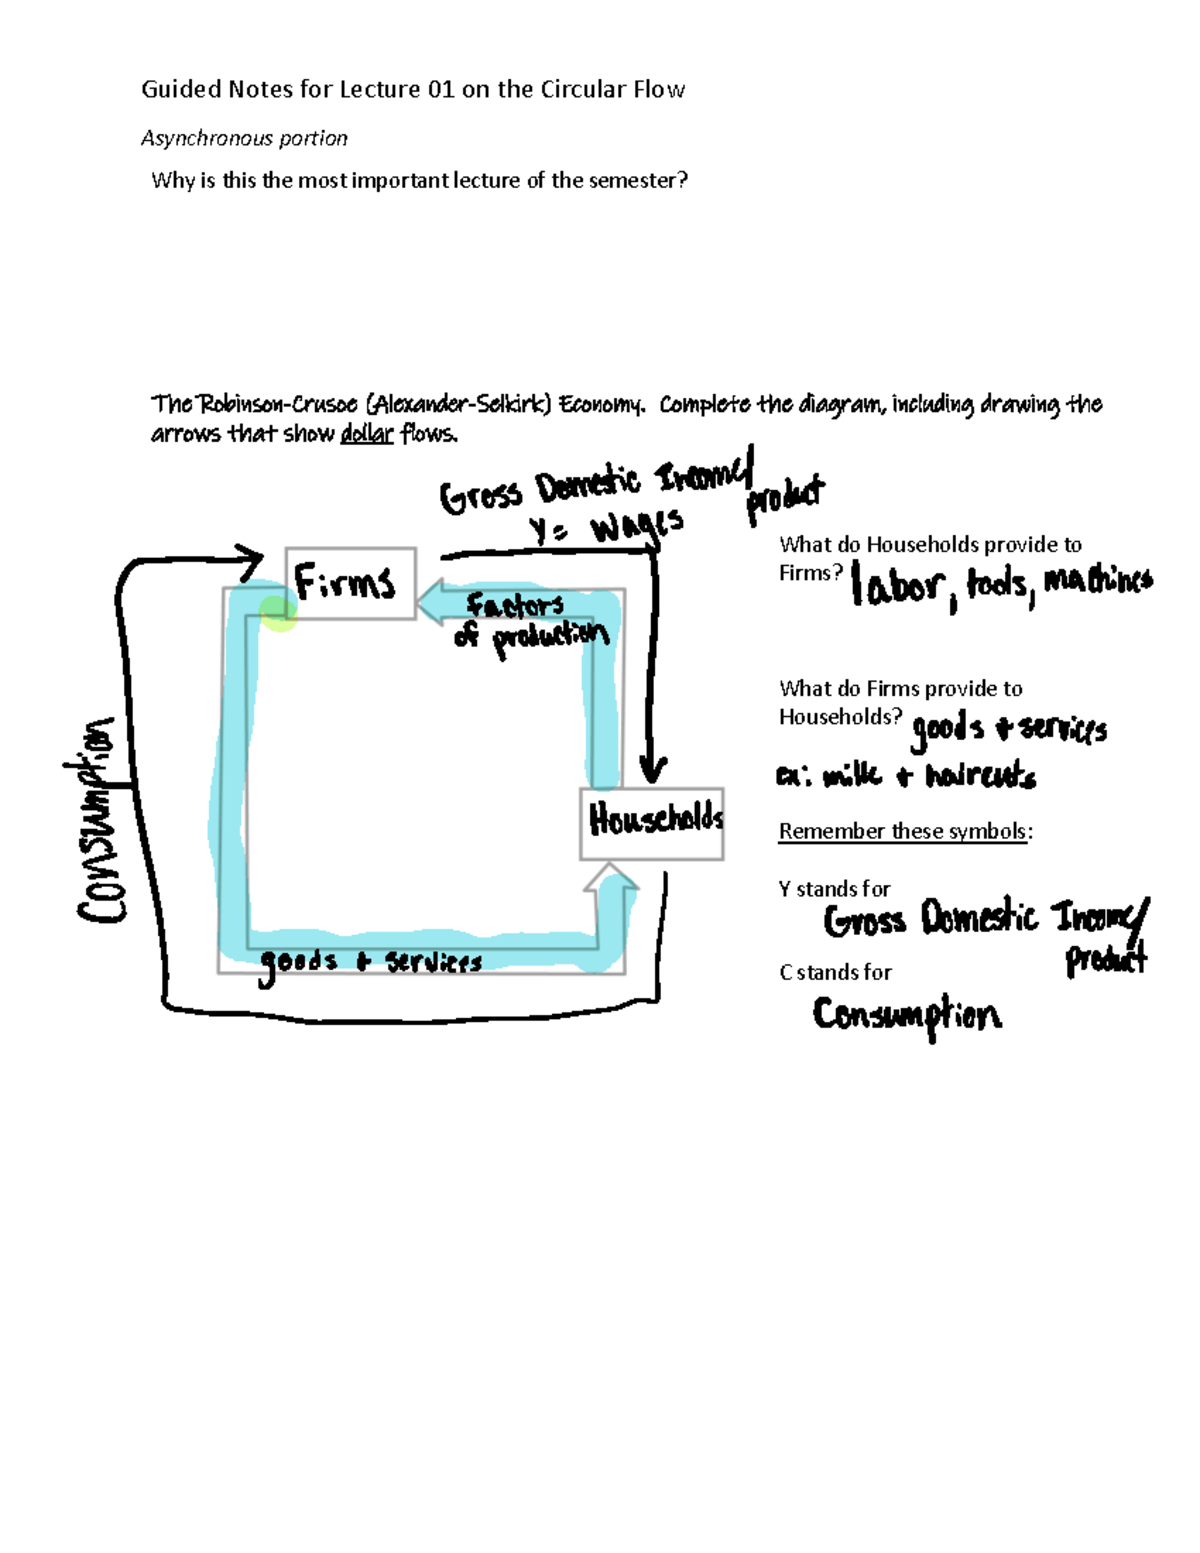 Guided Notes for Lecture 01 on the Circular Flow
Asynchronous portion
Why is this the most important lecture of the semester?
The Robinson-Crusoe (Alexander-Selkirk) Economy. Complete the diagram, including drawing the
arrows that show dollar flows.
Gross Domestic Income/
product
Y= Wages
Firms
Factors
of production
Consumption
Households
goods + services
What do Households provide to
Firms? labor, tools, machines
What do Firms provide to
Households? goods + services
ex: milk + haircuts
Remember these symbols:
Y stands for
Gross Domestic Income/
product
C stands for
Consumption